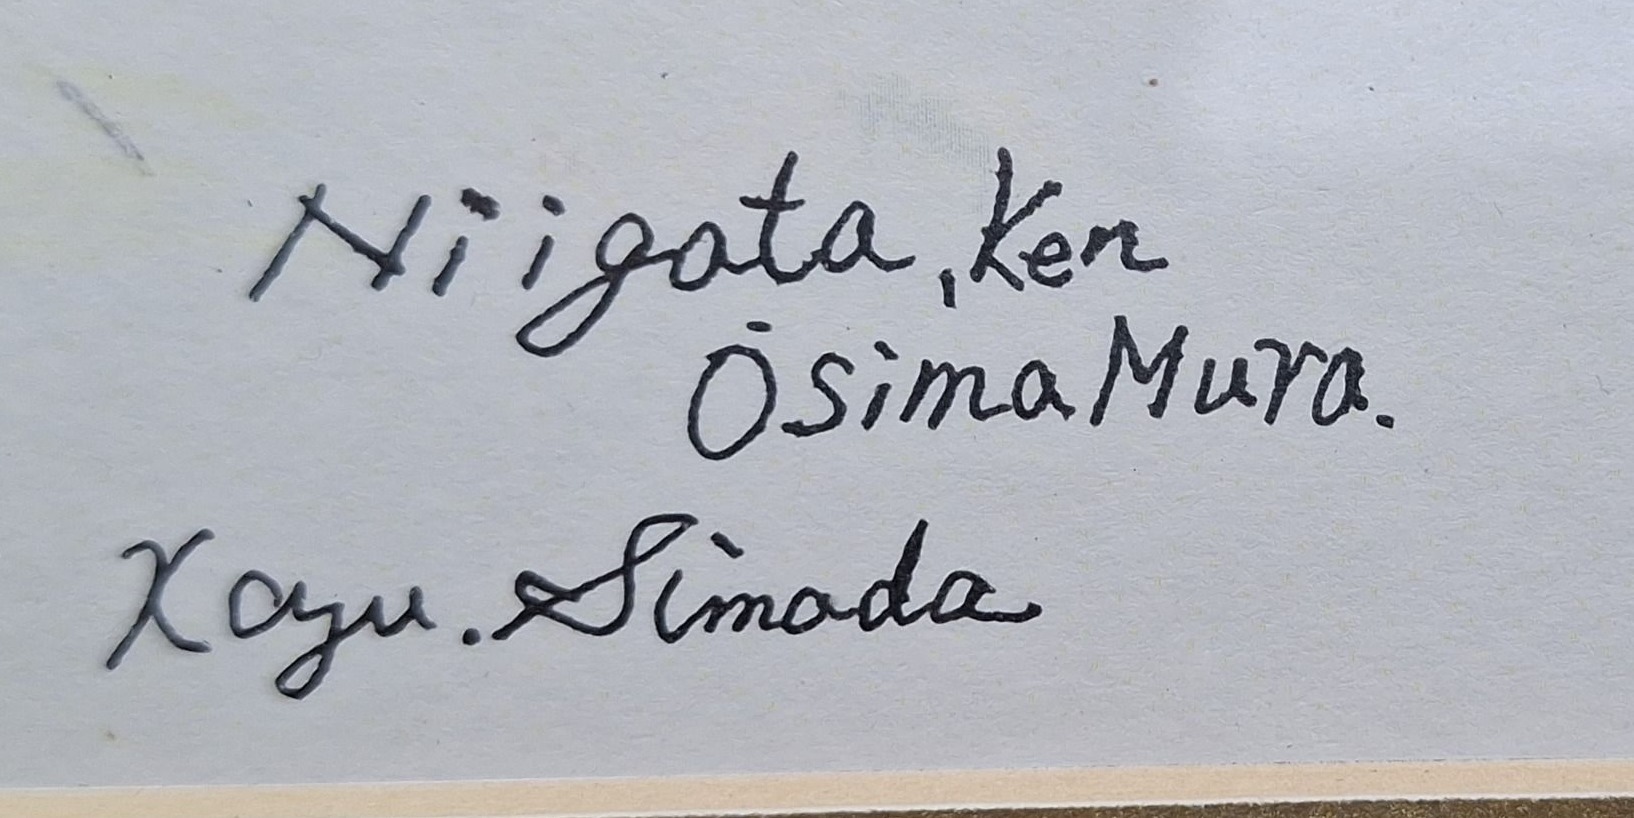 Niigata, Ken
Ōsima Mura.
Kayu. Simada